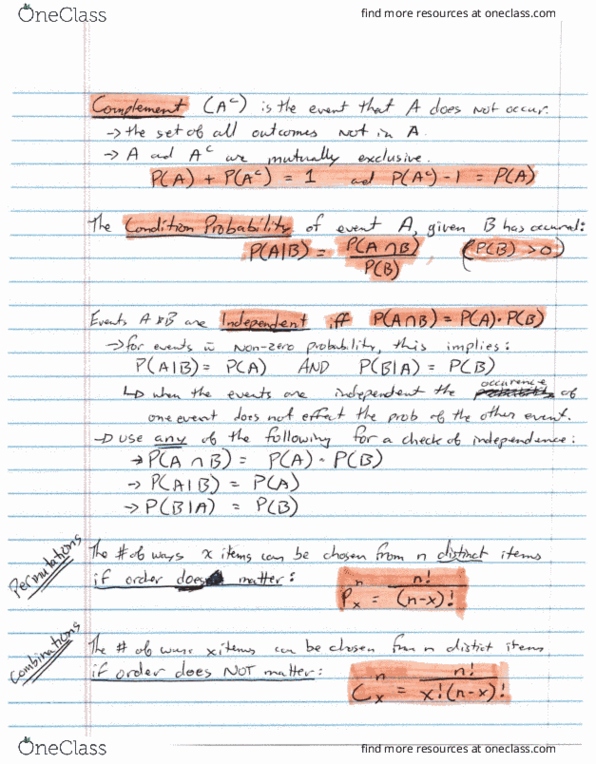 OneClass find more resources at oneclass.com
Complement (Aᶜ) is the event that A does not occur.
→ the set of all outcomes not in A.
→ A and Aᶜ are mutually exclusive.
P(A) + P(Aᶜ) = 1 and P(Aᶜ) - 1 = P(A)
The Condition Probability of event A, given B has occurred:
P(A|B) = P(A ∩ B) / P(B), (P(B) > 0)
Events A & B are Independent iff P(A∩B) = P(A)·P(B)
→ for events w̄ non-zero probability, this implies:
P(A|B) = P(A) AND P(B|A) = P(B)
↳ when the events are independent the occurence of
one event does not effect the prob of the other event.
→ use any of the following for a check of independence:
→ P(A ∩ B) = P(A) · P(B)
→ P(A|B) = P(A)
→ P(B|A) = P(B)
Permutations
The # of ways x items can be chosen from n distinct items
if order does matter: Pₓⁿ = n! / (n-x)!
Combinations
The # of ways x items can be chosen from n distict items
if order does NOT matter: Cₓⁿ = n! / x!(n-x)!
OneClass find more resources at oneclass.com